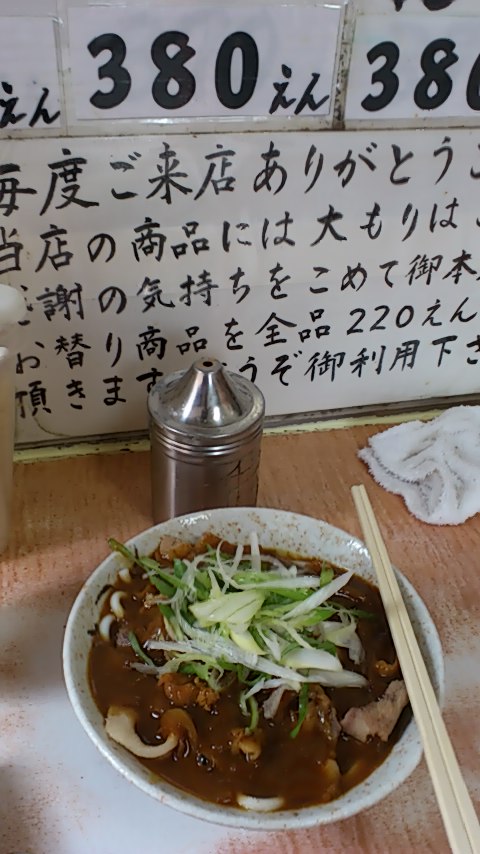 えん 380えん 380
毎度ご来店ありがとうご
当店の商品には大もりはご
謝の気持ちをこめて御本
お替り商品を全品220えん
頂きます どうぞ御利用下さ